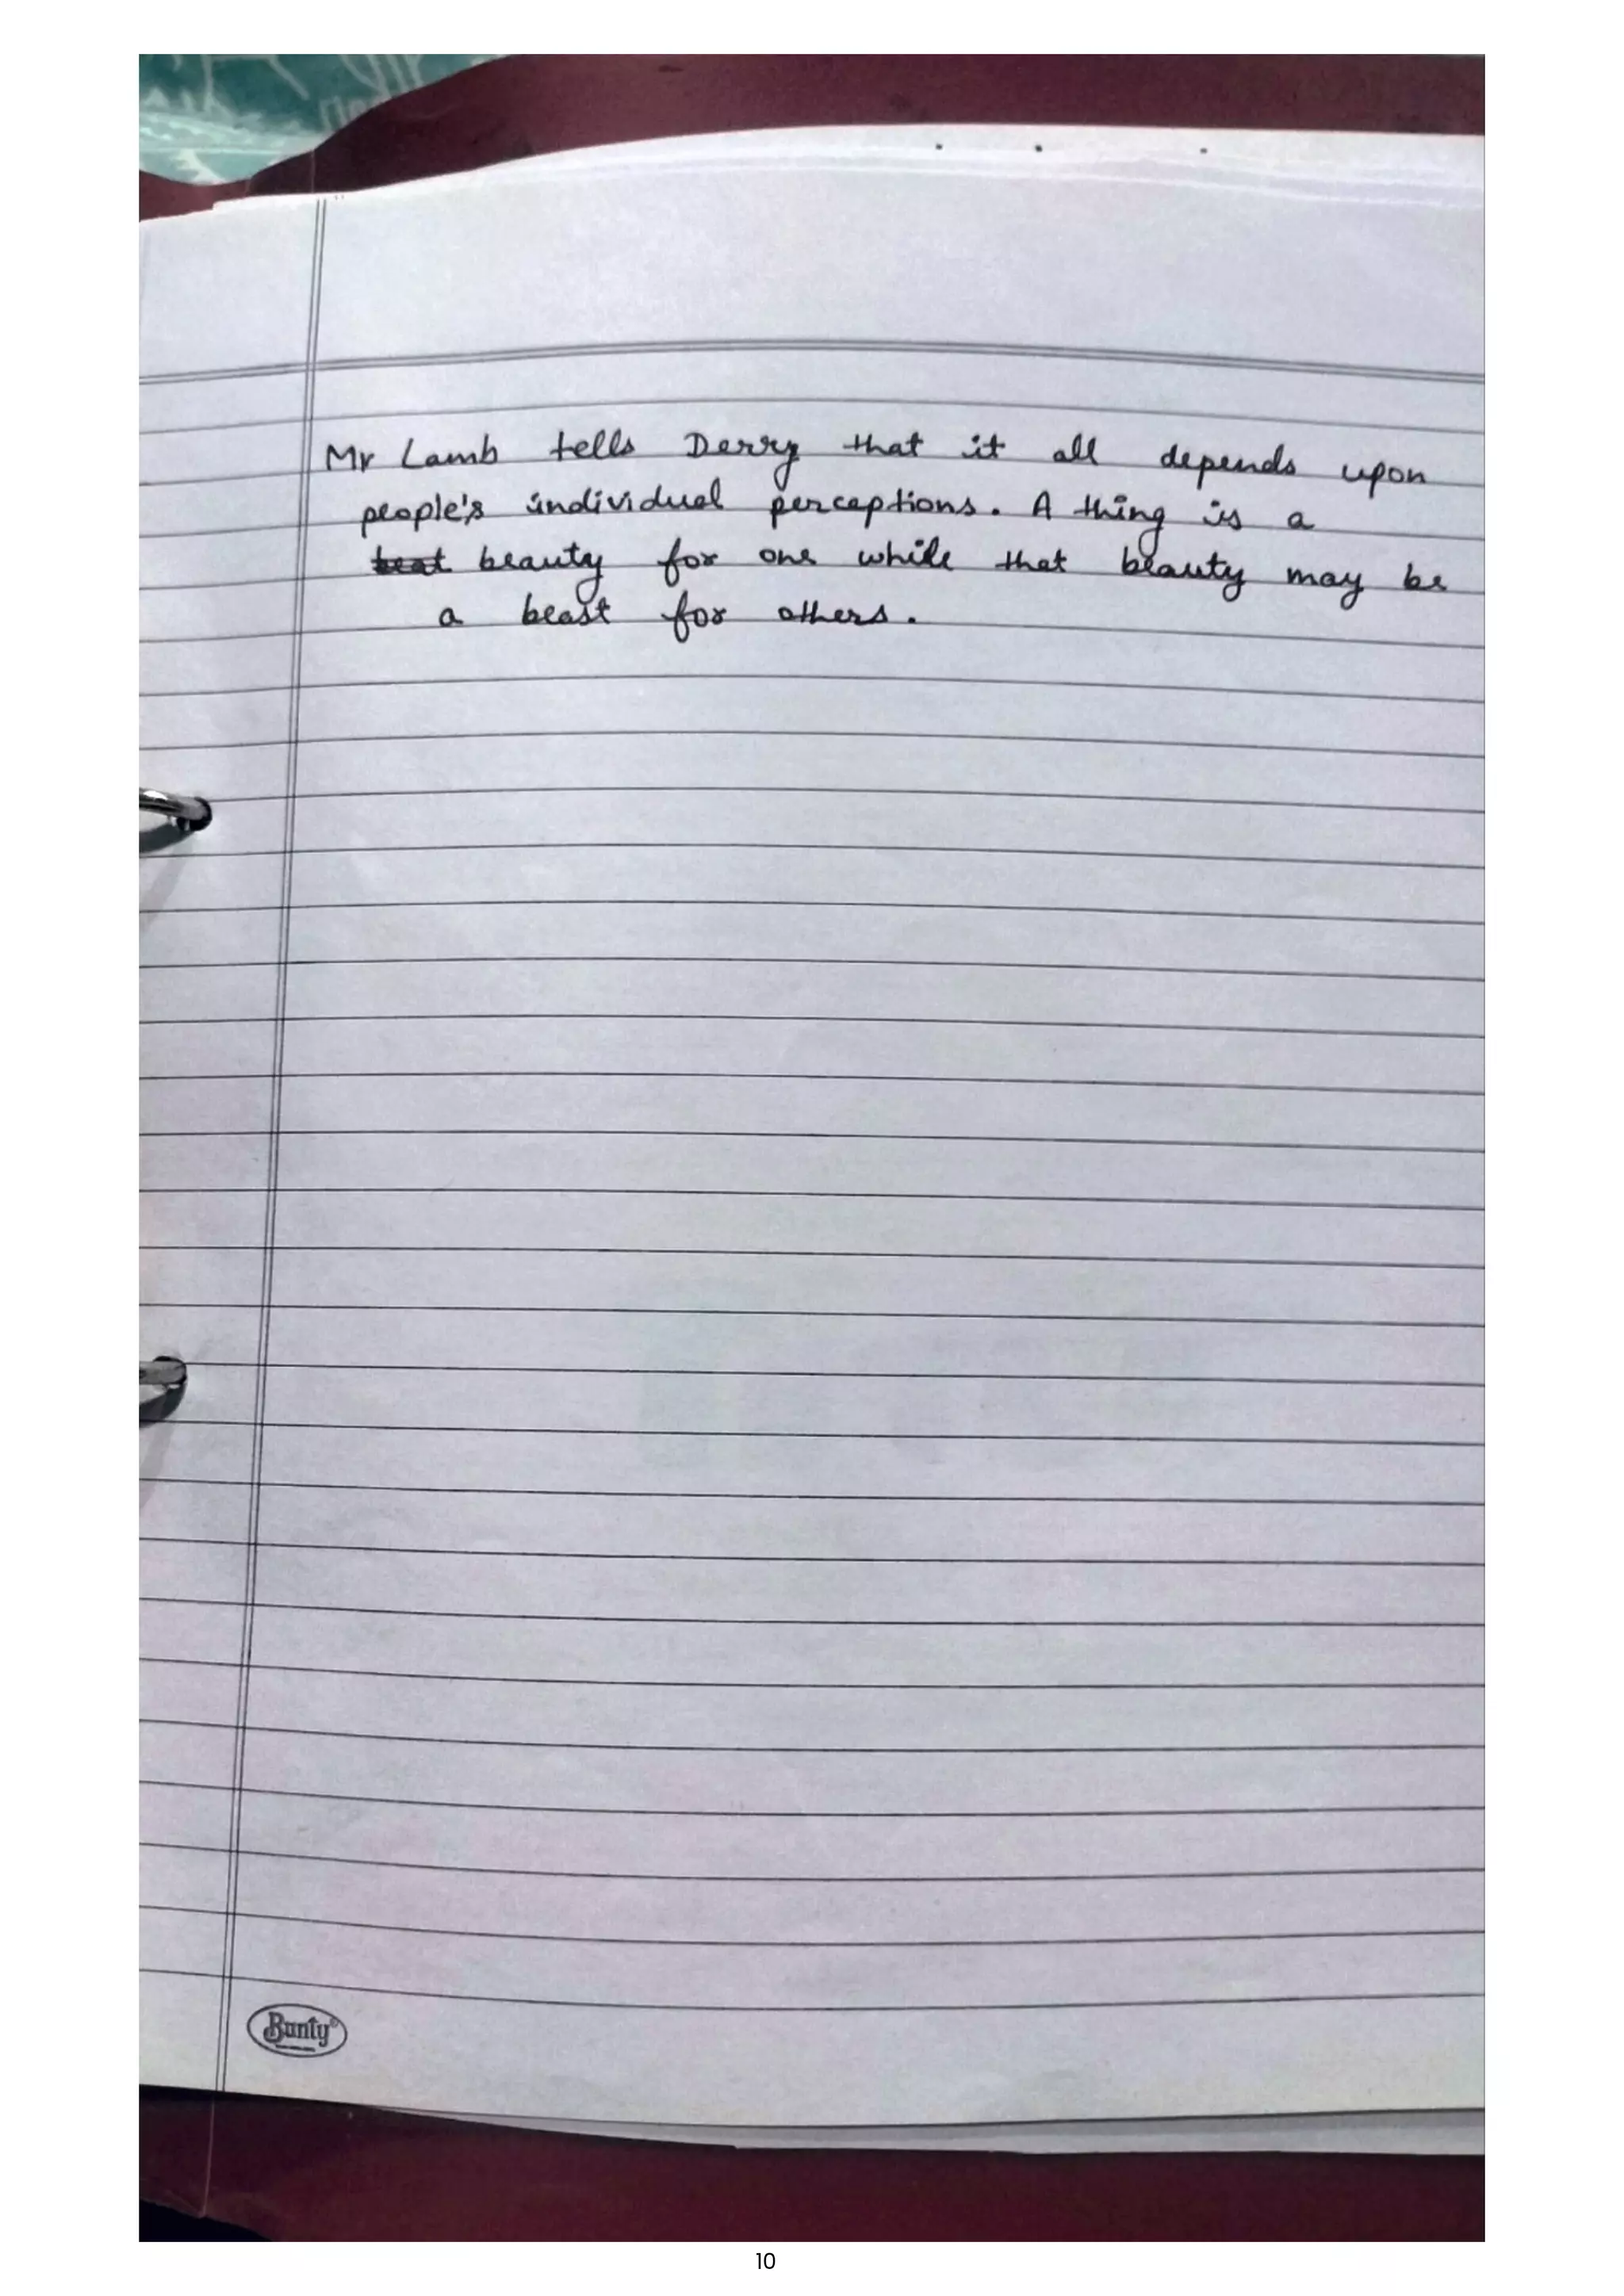 Mr Lamb tells Derry that it all depends upon
people's individual perceptions. A thing is a
beauty for one while that beauty may be
a beast for others.
Bunty
10